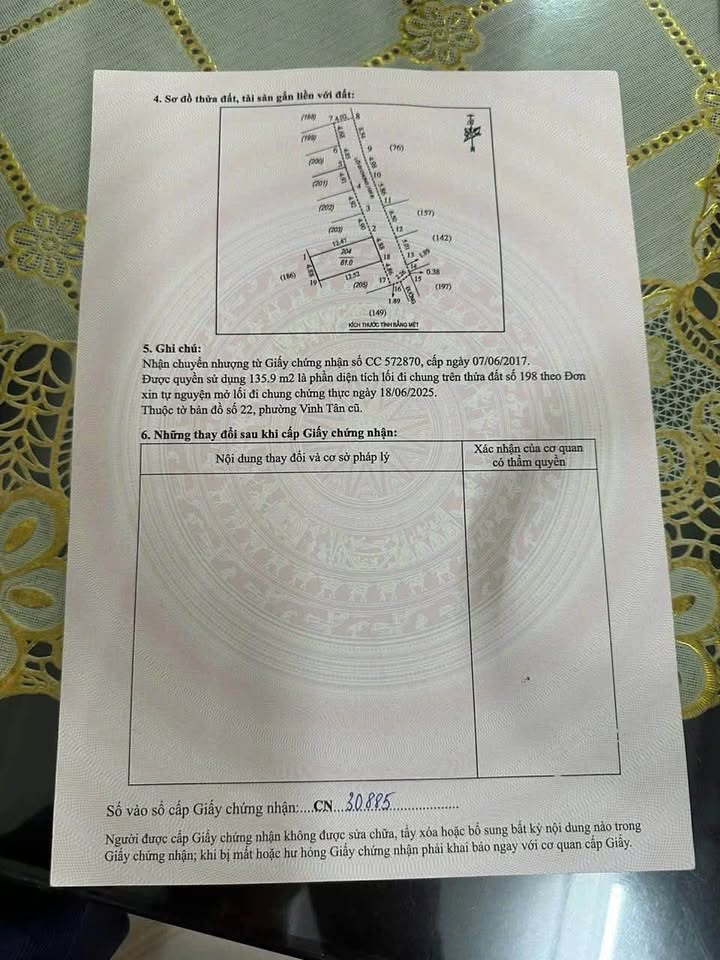 4. Sơ đồ thửa đất, tài sản gắn liền với đất:
(198) 7 4.00 8
(199) 4.88 5.50
6 9 (76)
(200) 4.85 4.98
5 10
(201) 4.91 5.80
4 11
(202) 4.92 6.50 (157)
3
(203) 4.90 12
2 (142)
12.47 4.88 5.01
1 204 13 1.89
61.0 18 14
(186) 4.88 12.52 4.86 0.38
19 (205) 17 15
16 (197)
1.89 ĐƯỜNG
(149)
KÍCH THƯỚC TÍNH BẰNG MÉT
5. Ghi chú:
Nhận chuyển nhượng từ Giấy chứng nhận số CC 572870, cấp ngày 07/06/2017.
Được quyền sử dụng 135.9 m2 là phần diện tích lối đi chung trên thửa đất số 198 theo Đơn
xin tự nguyện mở lối đi chung chứng thực ngày 18/06/2025.
Thuộc tờ bản đồ số 22, phường Vinh Tân cũ.
6. Những thay đổi sau khi cấp Giấy chứng nhận:
Nội dung thay đổi và cơ sở pháp lý
Xác nhận của cơ quan
có thẩm quyền
Số vào sổ cấp Giấy chứng nhận:....CN...30885...................
Người được cấp Giấy chứng nhận không được sửa chữa, tẩy xóa hoặc bổ sung bất kỳ nội dung nào trong
Giấy chứng nhận; khi bị mất hoặc hư hỏng Giấy chứng nhận phải khai báo ngay với cơ quan cấp Giấy.